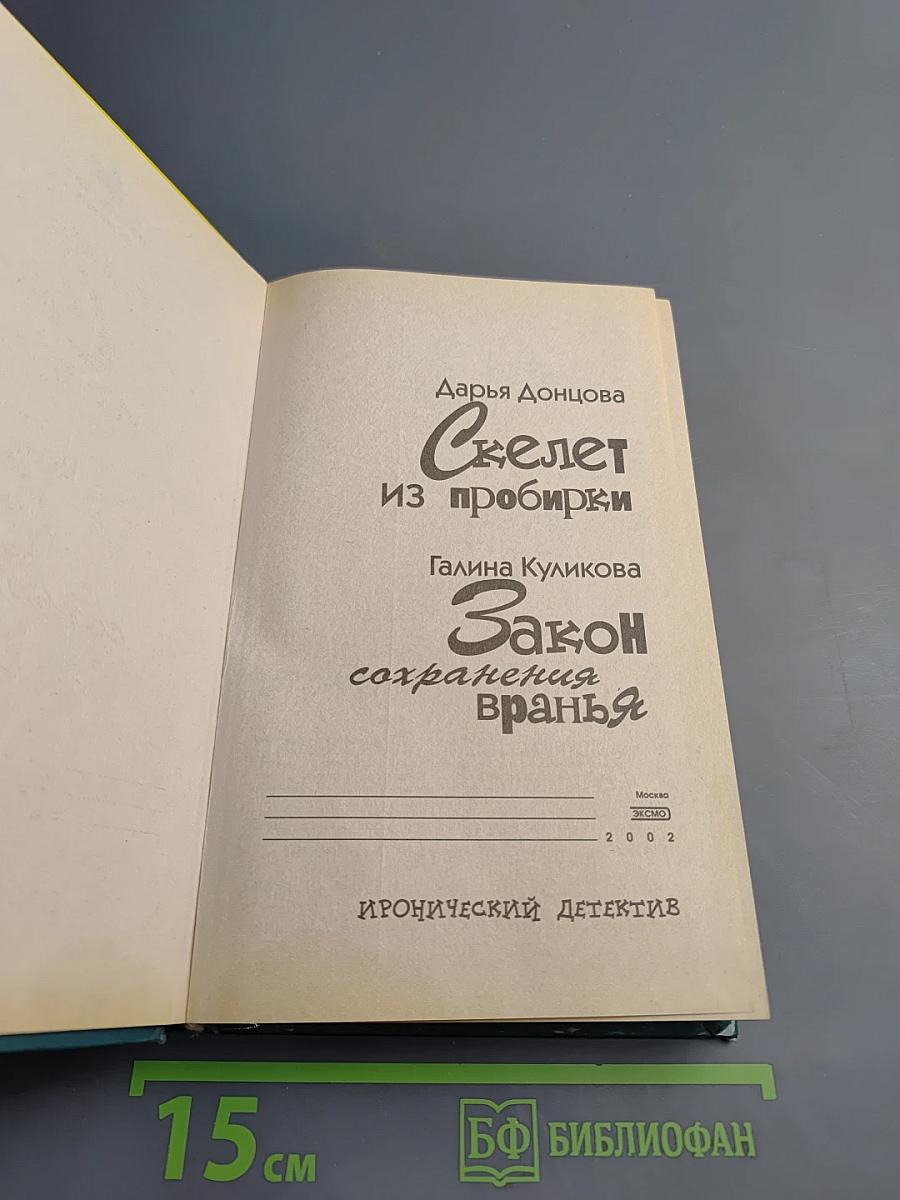 Дарья Донцова
Скелет
из пробирки
Галина Куликова
Закон
сохранения
вранья
Москва
ЭКСМО
2002
ИРОНИЧЕСКИЙ ДЕТЕКТИВ
15 см
БФ БИБЛИОФАН